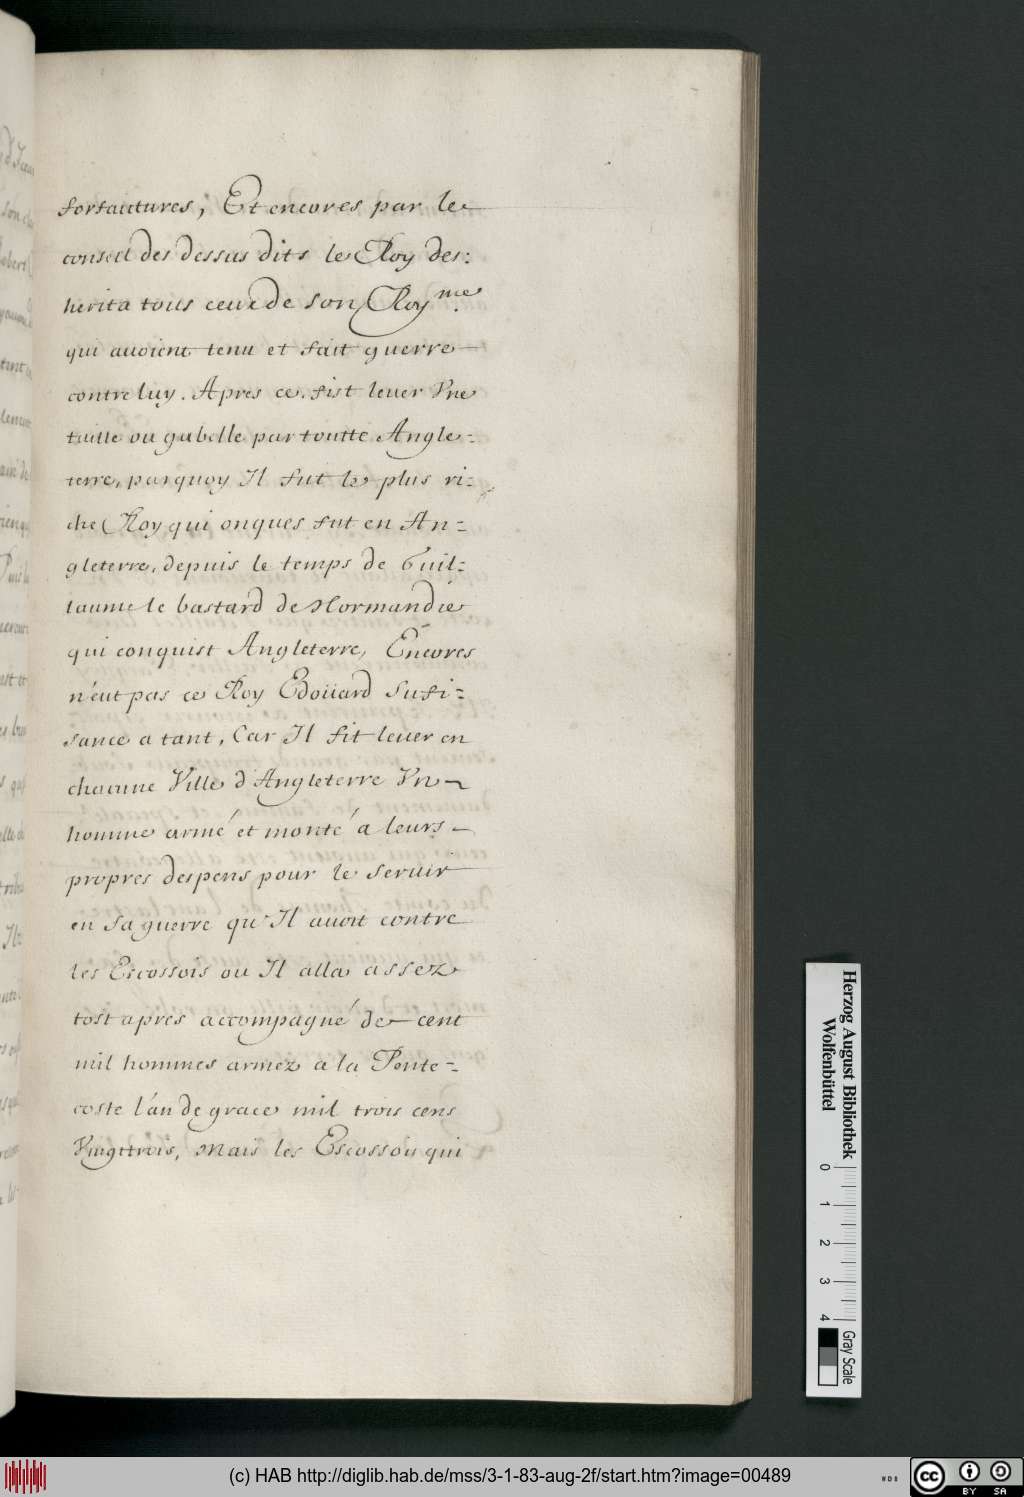 forfaitures, Et encores par le
conseil des dessus dits le Roy des:
herita tous ceux de son Roy.me
qui auoient tenu et fait guerre
contre luy. Apres ce, fist leuer Vne
taille ou gabelle par toutte Angle-:
terre, parquoy Il fut le plus ri-:
che Roy qui onques fut en An-:
gleterre, depuis le temps de Guil-:
laume le bastard de Normandie
qui conquist Angleterre, Encores
n'eut pas ce Roy Edoüard sufi-:
sance a tant, Car Il fit leuer en
chacune Ville d'Angleterre Vn
homme armé et monté a leurs
propres despens pour le seruir
en sa guerre qu'Il auoit contre
les Escossois ou Il alla assez
tost apres accompagné de cent
mil hommes armez a la Pente-:
coste l'an de grace mil trois cens
Vingttrois, mais les Escossois qui
Herzog August Bibliothek
Wolfenbüttel
0 1 2 3 4
Gray Scale
(c) HAB http://diglib.hab.de/mss/3-1-83-aug-2f/start.htm?image=00489
cc BY SA